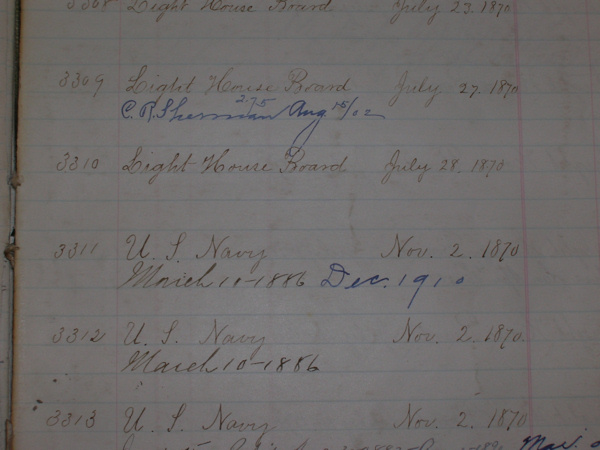 3308 Light House Board July 23. 1870
3309 Light House Board July 27. 1870
275
C. R. Sherman Aug 15/02
3310 Light House Board July 28. 1870
3311 U. S. Navy Nov. 2. 1870
March 10-1886 Dec. 1910
3312 U. S. Navy Nov. 2. 1870
March 10-1886
3313 U. S. Navy Nov. 2. 1870